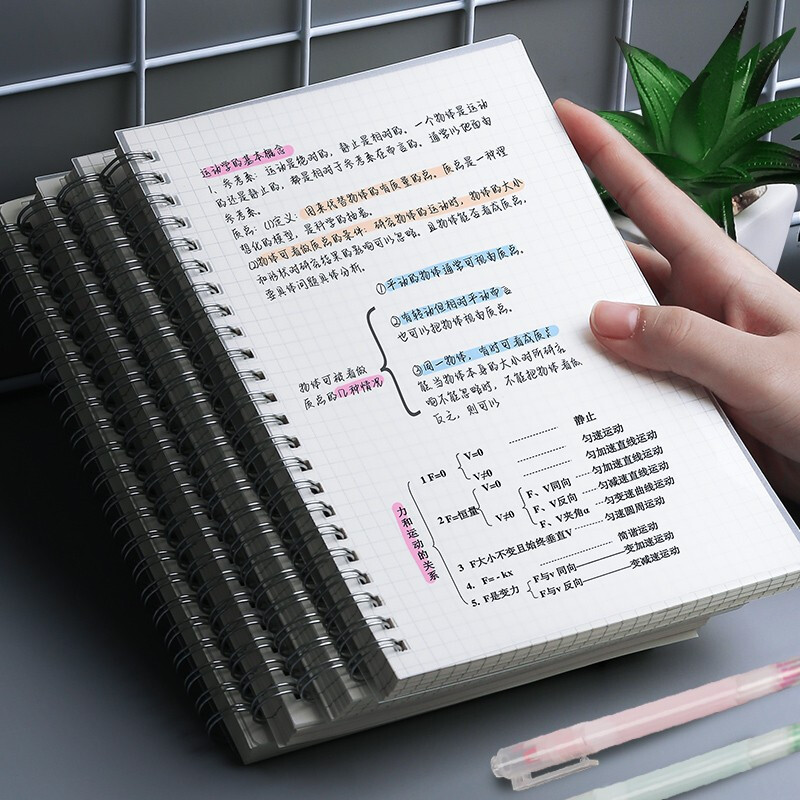 运动学的基本概念
1、参考系：运动是绝对的，静止是相对的。一个物体是运动
的还是静止的，都是相对于参考系在而言的。通常以地面为
参考系。
质点：(1)定义：用来代替物体的有质量的点。质点是一种理
想化的模型，是科学的抽象。
(2)物体可看做质点的条件：研究物体的运动时，物体的大小
和形状对研究结果的影响可以忽略。且物体能否看成质点，
要具体问题具体分析。
①平动的物体通常可视为质点。
②有转动但相对平动而言
也可以把物体视为质点。
③同一物体，有时可看成质点
能当物体本身的大小对所研究
响不能忽略时，不能把物体看做
反之，则可以
物体可被看做
质点的几种情况
力和运动的关系
1 F=0
V=0 静止
V≠0 匀速运动
2 F=恒量
V=0 匀加速直线运动
V≠0
F、V同向 匀加速直线运动
F、V反向 匀减速直线运动
F、V夹角α 匀变速曲线运动
3 F大小不变且始终垂直V 匀速圆周运动
4. F= - kx 简谐运动
5. F是变力
F与v 同向 变加速运动
F与v 反向 变减速运动